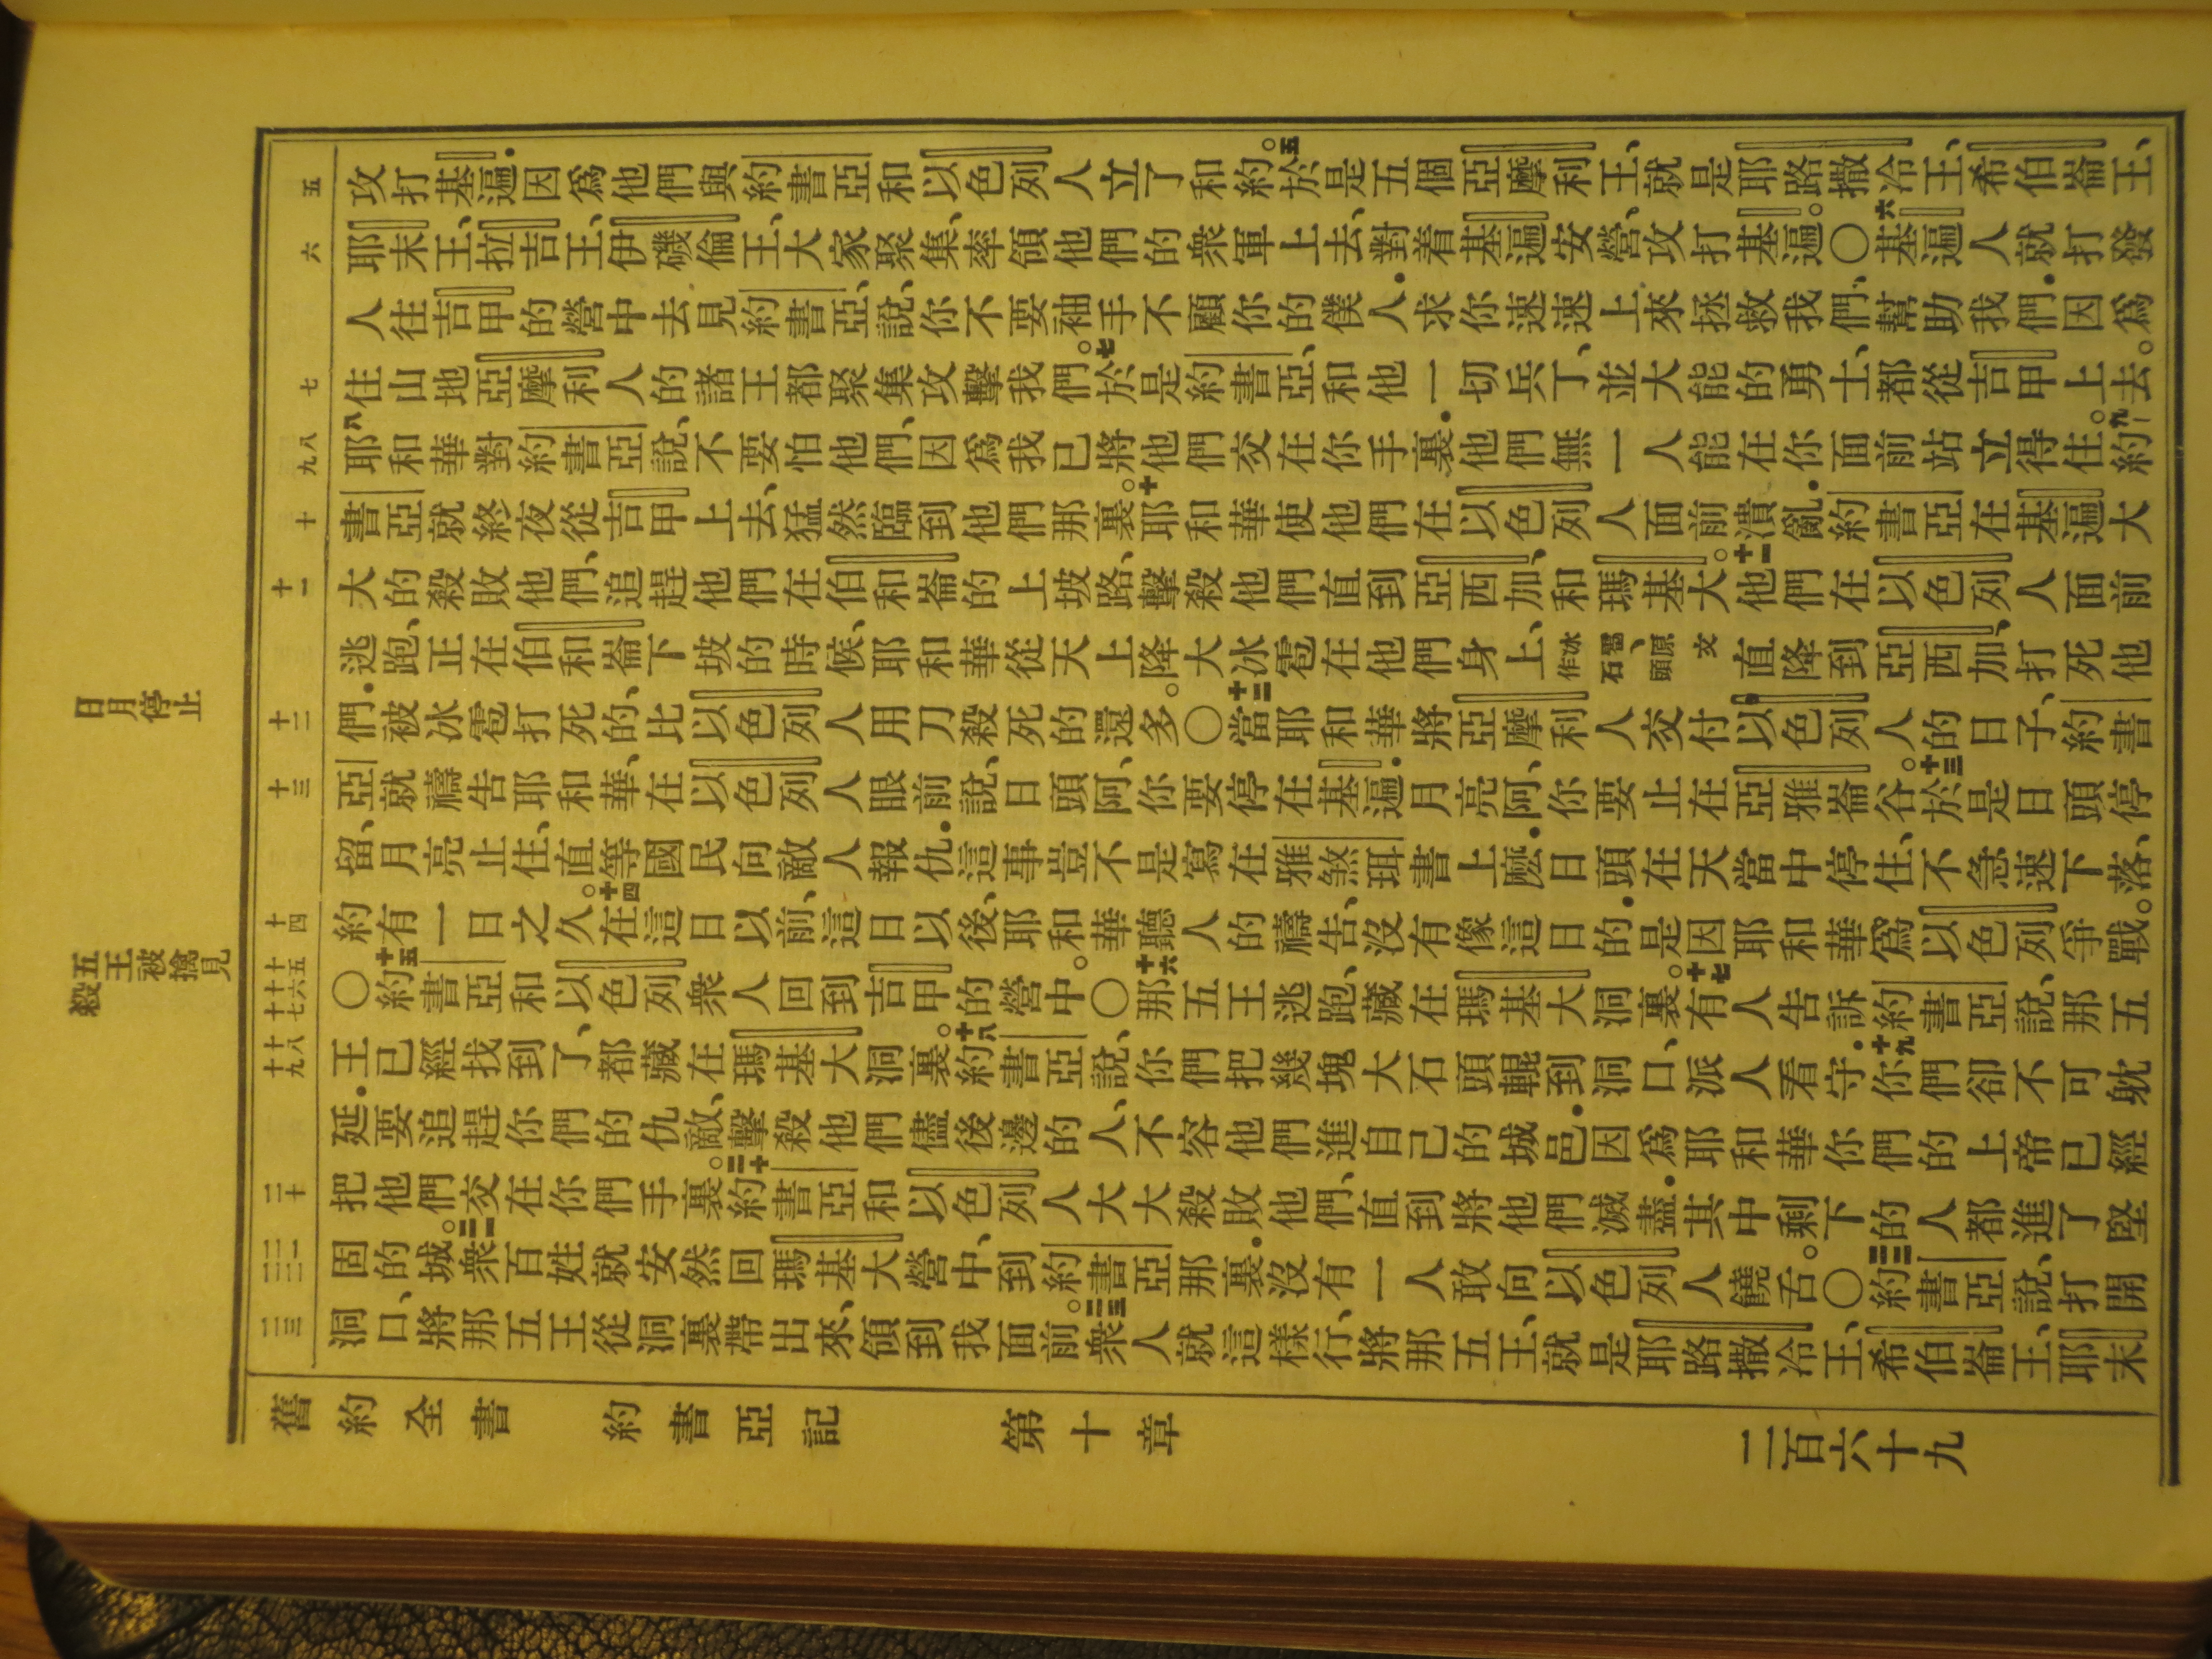 日月停止
五王被擒見殺
五
六
七
八
九
十
十一
十二
十三
十四
十五
十六
十七
十八
十九
二十
二一
二二
二三
攻打基遍．因爲他們與約書亞和以色列人立了和約。五於是五個亞摩利王、就是耶路撒冷王、希伯崙王、
耶末王、拉吉王、伊磯倫王、大家聚集、率領他們的衆軍上去、對着基遍安營、攻打基遍。〇六基遍人就打發
人往吉甲的營中去見約書亞、說、你不要袖手不顧你的僕人．求你速速上來拯救我們、幫助我們．因爲
住山地亞摩利人的諸王都聚集攻擊我們。七於是約書亞、和他一切兵丁、並大能的勇士、都從吉甲上去。
八耶和華對約書亞說、不要怕他們、因爲我已將他們交在你手裏．他們無一人能在你面前站立得住。九約
書亞就終夜從吉甲上去、猛然臨到他們那裏。十耶和華使他們在以色列人面前潰亂．約書亞在基遍大
大的殺敗他們、追趕他們在伯和崙的上坡路、擊殺他們直到亞西加、和瑪基大。十一他們在以色列人面前
逃跑、正在伯和崙下坡的時候、耶和華從天上降大冰雹在他們身上、冰雹、原文作石頭直降到亞西加、打死他
們．被冰雹打死的、比以色列人用刀殺死的還多。〇十二當耶和華將亞摩利人交付以色列人的日子、約書
亞就禱告耶和華、在以色列人眼前說、日頭阿、你要停在基遍．月亮阿、你要止在亞雅崙谷。十三於是日頭停
留、月亮止住、直等國民向敵人報仇．這事豈不是寫在雅煞珥書上麽．日頭在天當中停住、不急速下落、
約有一日之久。十四在這日以前、這日以後、耶和華聽人的禱告、沒有像這日的．是因耶和華爲以色列爭戰。
〇十五約書亞和以色列衆人回到吉甲的營中。〇十六那五王逃跑、藏在瑪基大洞裏。十七有人告訴約書亞說、那五
王已經找到了、都藏在瑪基大洞裏。十八約書亞說、你們把幾塊大石頭輥到洞口、派人看守．十九你們卻不可躭
延．要追趕你們的仇敵、擊殺他們儘後邊的人、不容他們進自己的城邑．因爲耶和華你們的上帝已經
把他們交在你們手裏。二十約書亞和以色列人大大殺敗他們、直到將他們滅盡．其中剩下的人都進了堅
固的城。二一衆百姓就安然回瑪基大營中、到約書亞那裏．沒有一人敢向以色列人饒舌。〇二二約書亞說、打開
洞口、將那五王從洞裏帶出來、領到我面前。二三衆人就這樣行、將那五王、就是耶路撒冷王、希伯崙王、耶末
舊約全書 約書亞記 第十章 二百六十九